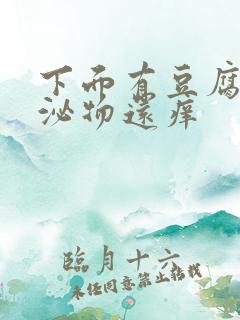 下面有豆腐
泌物还痒
臨月十六
未经同意禁止转载